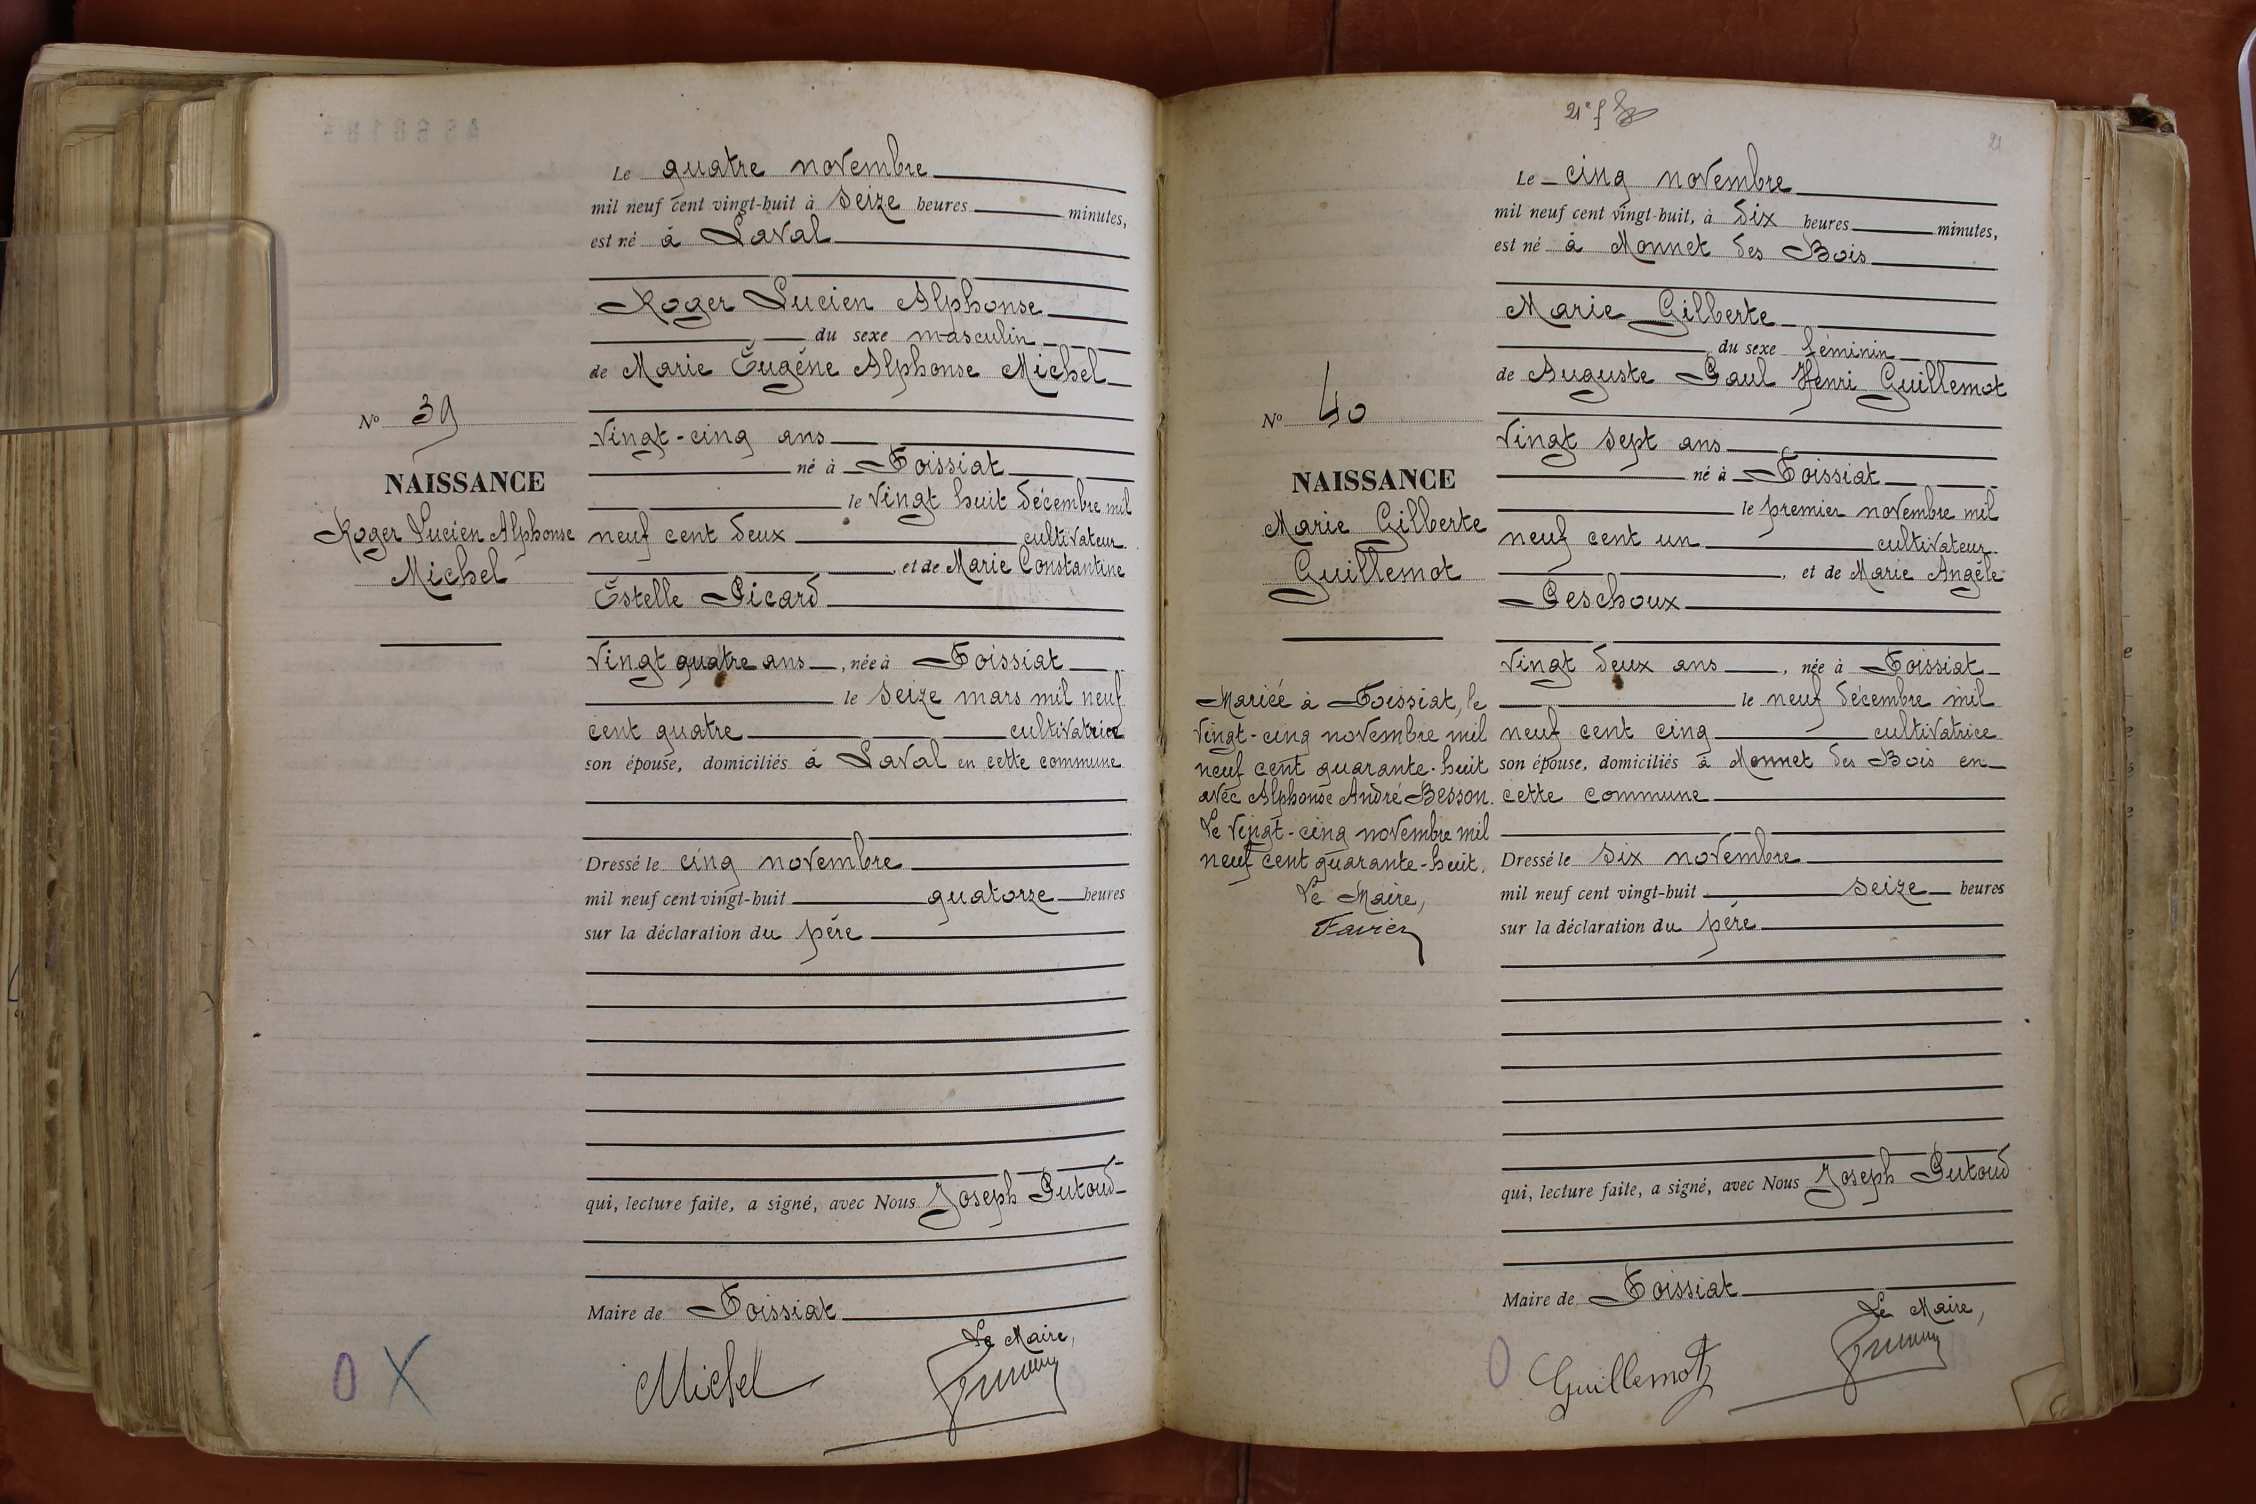 Le quatre novembre
mil neuf cent vingt-huit à seize heures minutes,
est né à Laval
Roger Lucien Alphonse
du sexe masculin
de Marie Eugène Alphonse Michel
Nº 39
vingt-cinq ans
né à Foissiat
NAISSANCE
le vingt huit décembre mil
Roger Lucien Alphonse
neuf cent deux cultivateur
Michel
, et de Marie Constantine
Estelle Picard
vingt quatre ans, née à Foissiat
le seize mars mil neuf
cent quatre cultivatrice
son épouse, domiciliés à Laval en cette commune
Dressé le cinq novembre
mil neuf cent vingt-huit quatorze heures
sur la déclaration du père
qui, lecture faite, a signé, avec Nous Joseph Putoud
Maire de Foissiat
Le Maire,
Michel
O X
21e f
21
Le cinq novembre
mil neuf cent vingt-huit, à dix heures minutes,
est né à Monnet des Bois
Marie Gilberte
du sexe féminin
de Auguste Paul Henri Guillemot
Nº 40
vingt sept ans
né à Foissiat
NAISSANCE
le premier novembre mil
Marie Gilberte
neuf cent un cultivateur
Guillemot
, et de Marie Angèle
Peschoux
vingt deux ans, née à Foissiat
le neuf décembre mil
neuf cent cinq cultivatrice
son épouse, domiciliés à Monnet des Bois en
cette commune
Mariée à Foissiat, le
vingt-cinq novembre mil
neuf cent quarante-huit
avec Alphonse André Besson.
Le vingt-cinq novembre mil
neuf cent quarante-huit.
Le Maire,
Favier
Dressé le six novembre
mil neuf cent vingt-huit seize heures
sur la déclaration du père
qui, lecture faite, a signé, avec Nous Joseph Putoud
Maire de Foissiat
Le Maire,
Guillemot
O